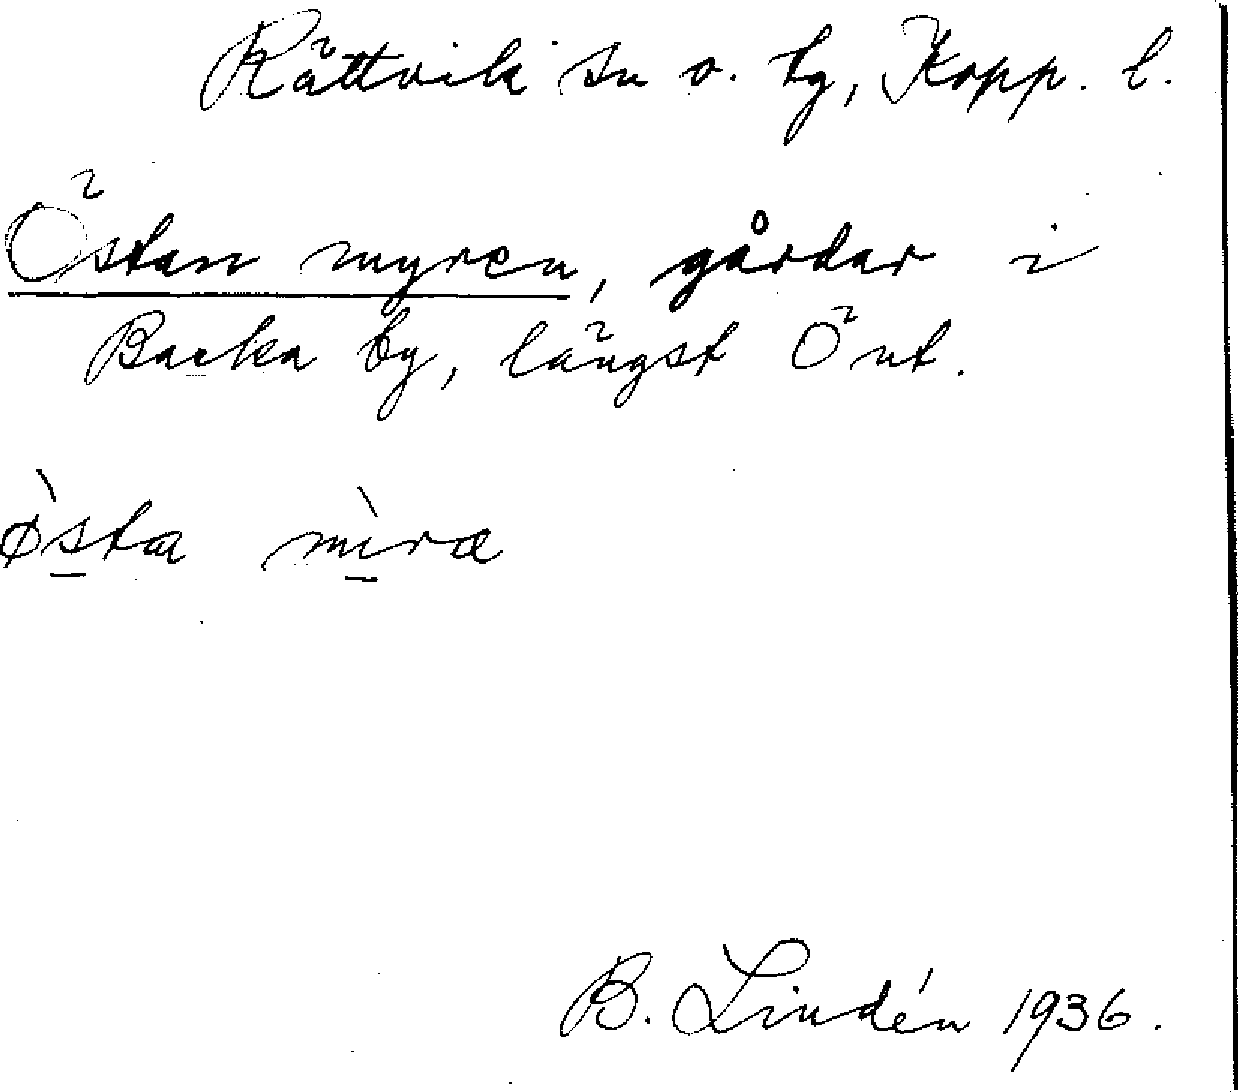 Rättvik sn o. tg, Kopp. l.
Östan myren, gårdar i
Backa by, längst Ö ut.
ø̀sta mìra
B. Lindén 1936.